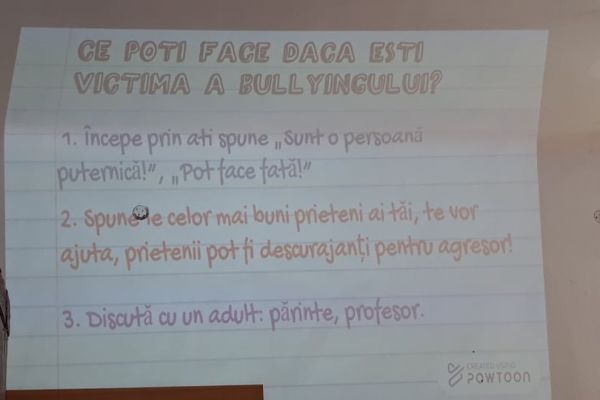 CE POTI FACE DACA ESTI
VICTIMA A BULLYINGULUI?
1. Începe prin ati spune „Sunt o persoană
puternică!”, „Pot face fată!”
2. Spune le celor mai buni prieteni ai tăi, te vor
ajuta, prietenii pot fi descurajanți pentru agresor!
3. Discută cu un adult: părinte, profesor.
CREATED USING
POWTOON